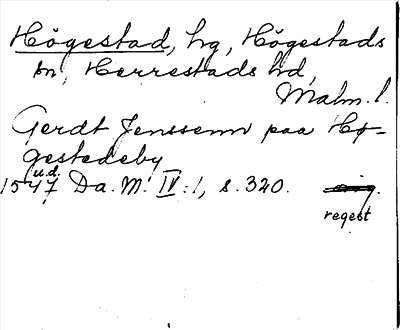 Högestad, hg, Högestads
sn, Herrestads hd,
Malm. l.
Gerdt Jenssenn paa Hø-
gestedeby
u.d.
1547 Da. M. IV:1, s. 320. orig.
regest